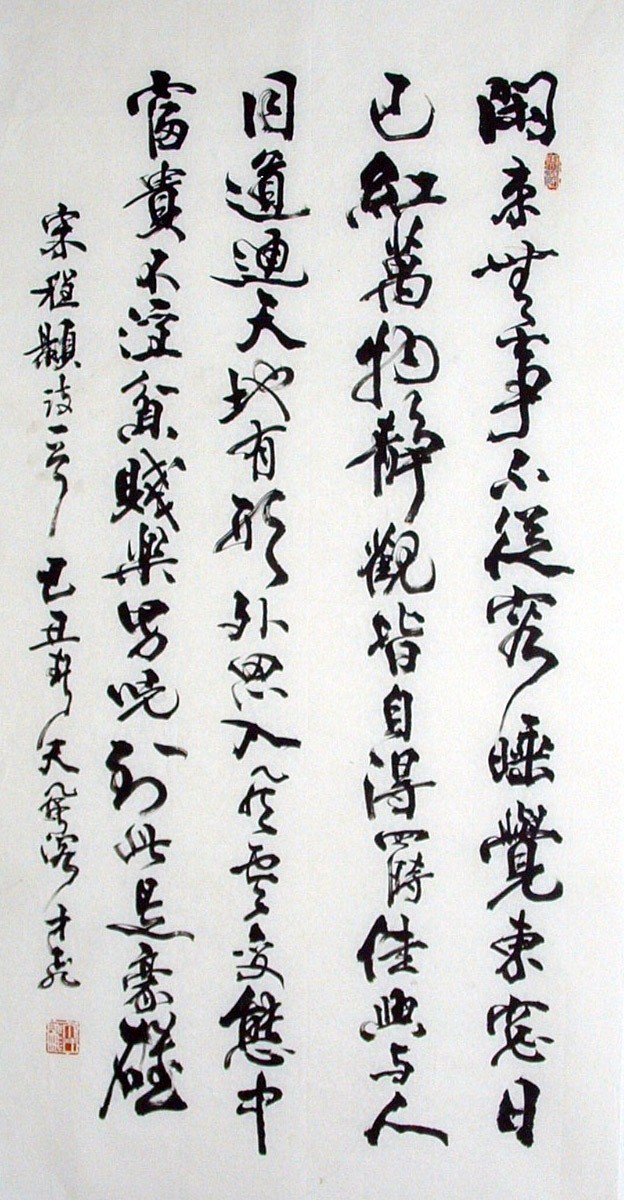 閑来無事不從容睡覺東窓日
已紅萬物靜觀皆自得四時佳興与人
同道通天地有形外思入風雲变態中
富貴不淫貧賤樂男児到此是豪雄
宋程顥诗一首 己丑春天風閣才飛